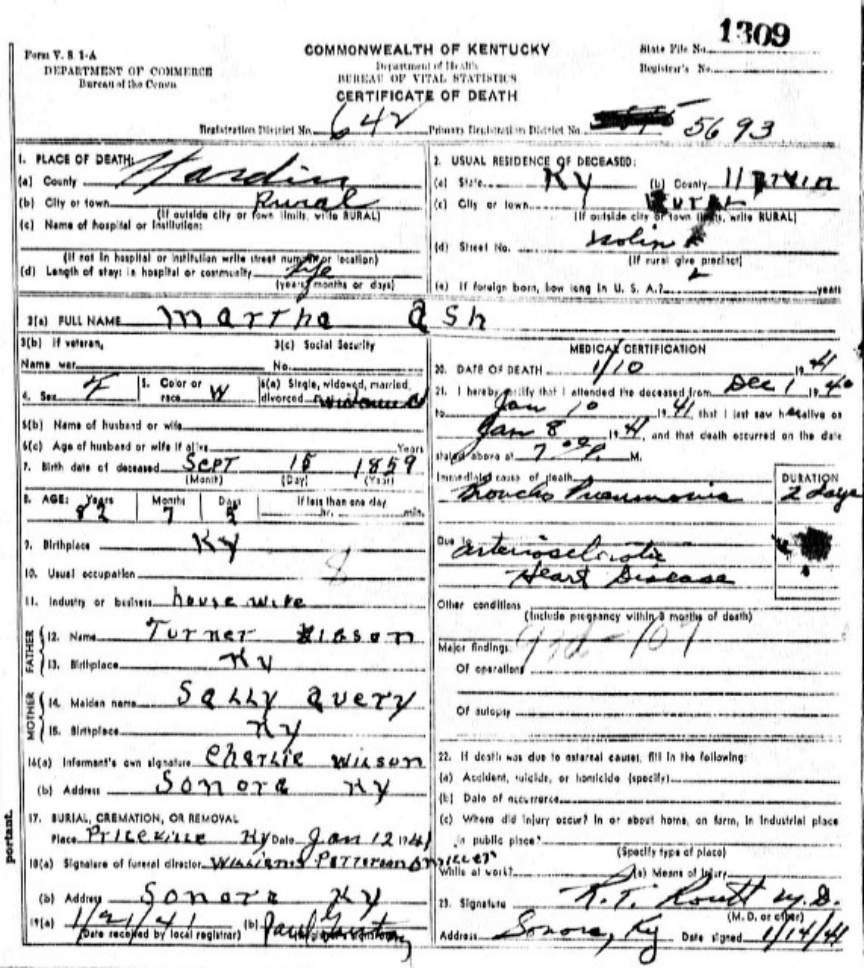 1309
Form V. S 1-A
DEPARTMENT OF COMMERCE
Bureau of the Census
COMMONWEALTH OF KENTUCKY
Department of Health
BUREAU OF VITAL STATISTICS
CERTIFICATE OF DEATH
State File No.
Registrar's No.
Registration District No. 642 Primary Registration District No. 5693
1. PLACE OF DEATH:
(a) County Hardin
(b) City or town Rural
(If outside city or town limits, write RURAL)
(c) Name of hospital or institution:
(If not in hospital or institution write street number or location)
(d) Length of stay: in hospital or community life
(years, months or days)
2. USUAL RESIDENCE OF DECEASED:
(a) State Ky (b) County
(c) City or town Rural
(If outside city or town limits, write RURAL)
(d) Street No. Nolin
(If rural give precinct)
(e) If foreign born, how long in U. S. A.? years
3(a) FULL NAME Martha Ash
3(b) If veteran, 3(c) Social Security
Name war No.
4. Sex F 5. Color or race W 6(a) Single, widowed, married, divorced widowed
6(b) Name of husband or wife
6(c) Age of husband or wife if alive Years
7. Birth date of deceased Sept 15 1859
(Month) (Day) (Year)
8. AGE: Years Months Days If less than one day
82 7 hr. min.
9. Birthplace Ky
10. Usual occupation
11. Industry or business house wife
FATHER
12. Name Turner
13. Birthplace Ky
MOTHER
14. Maiden name Sally Avery
15. Birthplace Ky
16(a) Informant's own signature Charlie Wilson
(b) Address Sonora Ky
17. BURIAL, CREMATION, OR REMOVAL
Place Priceville Ky Date Jan 12 1941
18(a) Signature of funeral director Williams Patterson & Miller
(b) Address Sonora Ky
19(a) 1/21/41 (b) Paul
(Date received by local registrar)
MEDICAL CERTIFICATION
20. DATE OF DEATH 1/10 1941
21. I hereby certify that I attended the deceased from Dec 1 1940
to Jan 10 1941, that I last saw her alive on
Jan 8 1941, and that death occurred on the date
stated above at M.
Immediate cause of death DURATION
Broncho Pneumonia 2 days
Due to arteriosclerotic
Heart Disease
Other conditions
(Include pregnancy within 3 months of death)
Major findings:
Of operations
Of autopsy
22. If death was due to external causes, fill in the following:
(a) Accident, suicide, or homicide (specify)
(b) Date of occurrence
(c) Where did injury occur? In or about home, on farm, in industrial place
in public place?
(Specify type of place)
While at work? (e) Means of Injury
23. Signature R. T. Routt M.D.
(M. D. or other)
Address Sonora, Ky Date signed 1/14/41
portant.